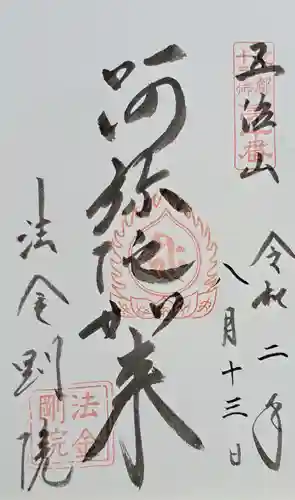 五位山
令和二年
八月十三日
阿弥陀如来
法金剛院
法金
剛院